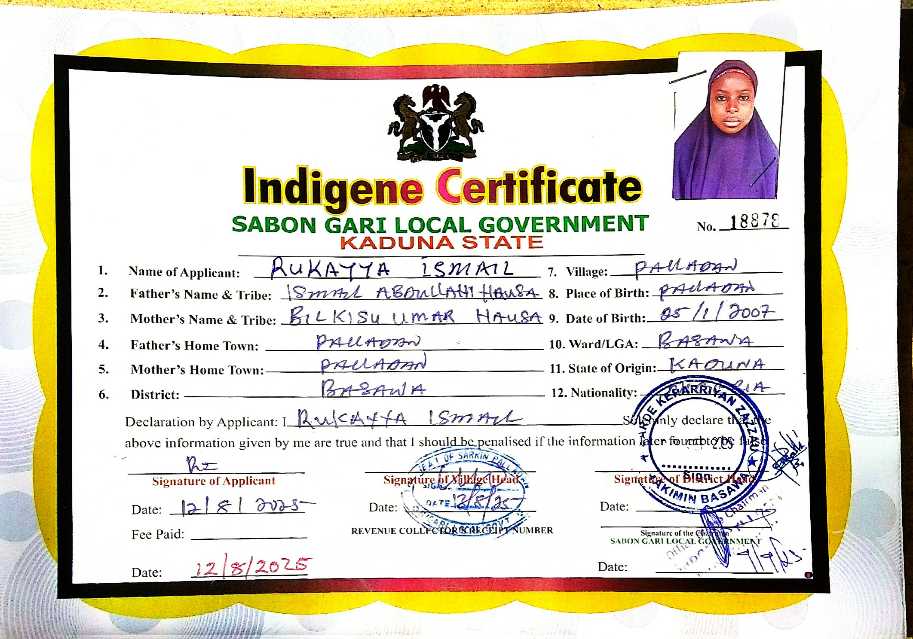 Indigene Certificate
SABON GARI LOCAL GOVERNMENT
KADUNA STATE
No. 18878
1. Name of Applicant: RUKAYYA ISMAIL 7. Village: PALLADAN
2. Father's Name & Tribe: ISMAIL ABDULLAHI HAUSA 8. Place of Birth: PALLADAN
3. Mother's Name & Tribe: BILKISU UMAR HAUSA 9. Date of Birth: 05/1/2007
4. Father's Home Town: PALLADAN 10. Ward/LGA: BASAWA
5. Mother's Home Town: PALLADAN 11. State of Origin: KADUNA
6. District: BASAWA 12. Nationality:
Declaration by Applicant: I RUKAYYA ISMAIL Solemnly declare that the
above information given by me are true and that I should be penalised if the information later found to be false
Signature of Applicant Signature of Village Head Signature of District Head
Date: 12/8/2025 Date: 12/8/25 Date:
Fee Paid: REVENUE COLLECTOR'S RECEIPT NUMBER
Signature of the Chairman
SABON GARI LOCAL GOVERNMENT
Date: 12/8/2025 Date: